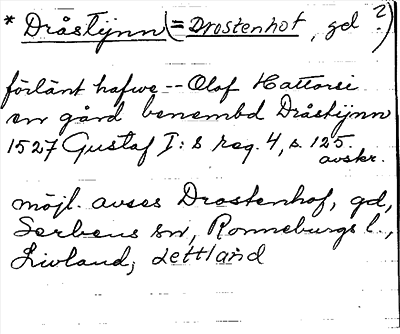 * Dråstijnn (= Drostenhof, gd ?)
förlänt hafwe -- Olof Hattorsi
en gård benembd Dråstijnn
1527 Gustaf I:s reg. 4, s. 125
avskr.
möjl. avses Drostenhof, gd,
Serbens sn, Ronneburgs l.,
Livland, Lettland